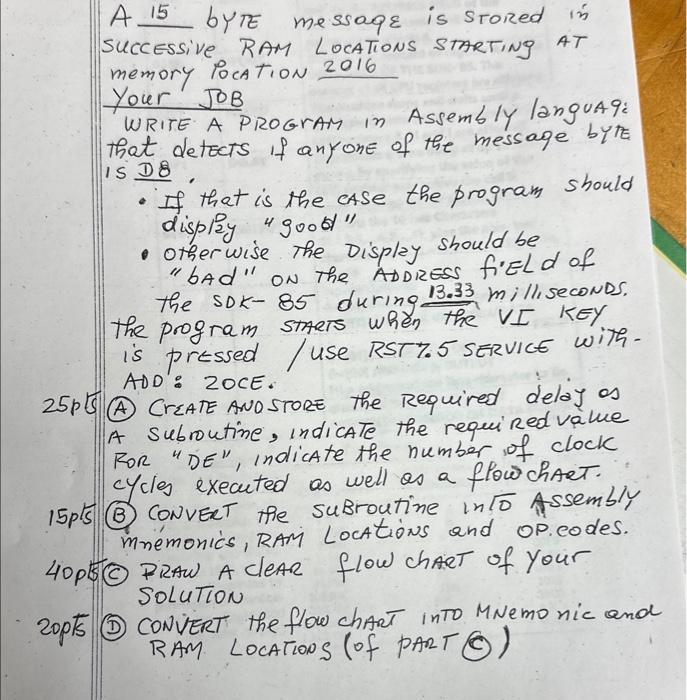 A 15 byTE message is STORED in
SUCCESSIVE RAM LOCATIONS STARTING AT
memory LOCATION 2016
Your JOB
WRITE A PROGRAM in Assembly language
that detects if anyone of the message byTE
IS D8.
• If that is the CASE the program should
display "good"
• otherwise The Display should be
"bAd" ON The ADDRESS fiELd of
the SDK-85 during 13.33 milliseconds.
the program STARTS when the VI KEY
is pressed / use RST 7.5 SERVICE with-
ADD: 20CE.
25pts (A) CREATE AND STORE the Required delay as
A subroutine, indicate the required value
FOR "DE", indicate the number of clock
cycles executed as well as a flowchart.
15pts (B) CONVERT the SUBROUTINE into Assembly
mnemonics, RAM LOCATIONS and OP.codes.
40pts (C) DRAW A cleAR flow chART of your
SOLUTION
20pts (D) CONVERT the flow chART INTO MNemonic and
RAM LOCATIONS (of PART (C))